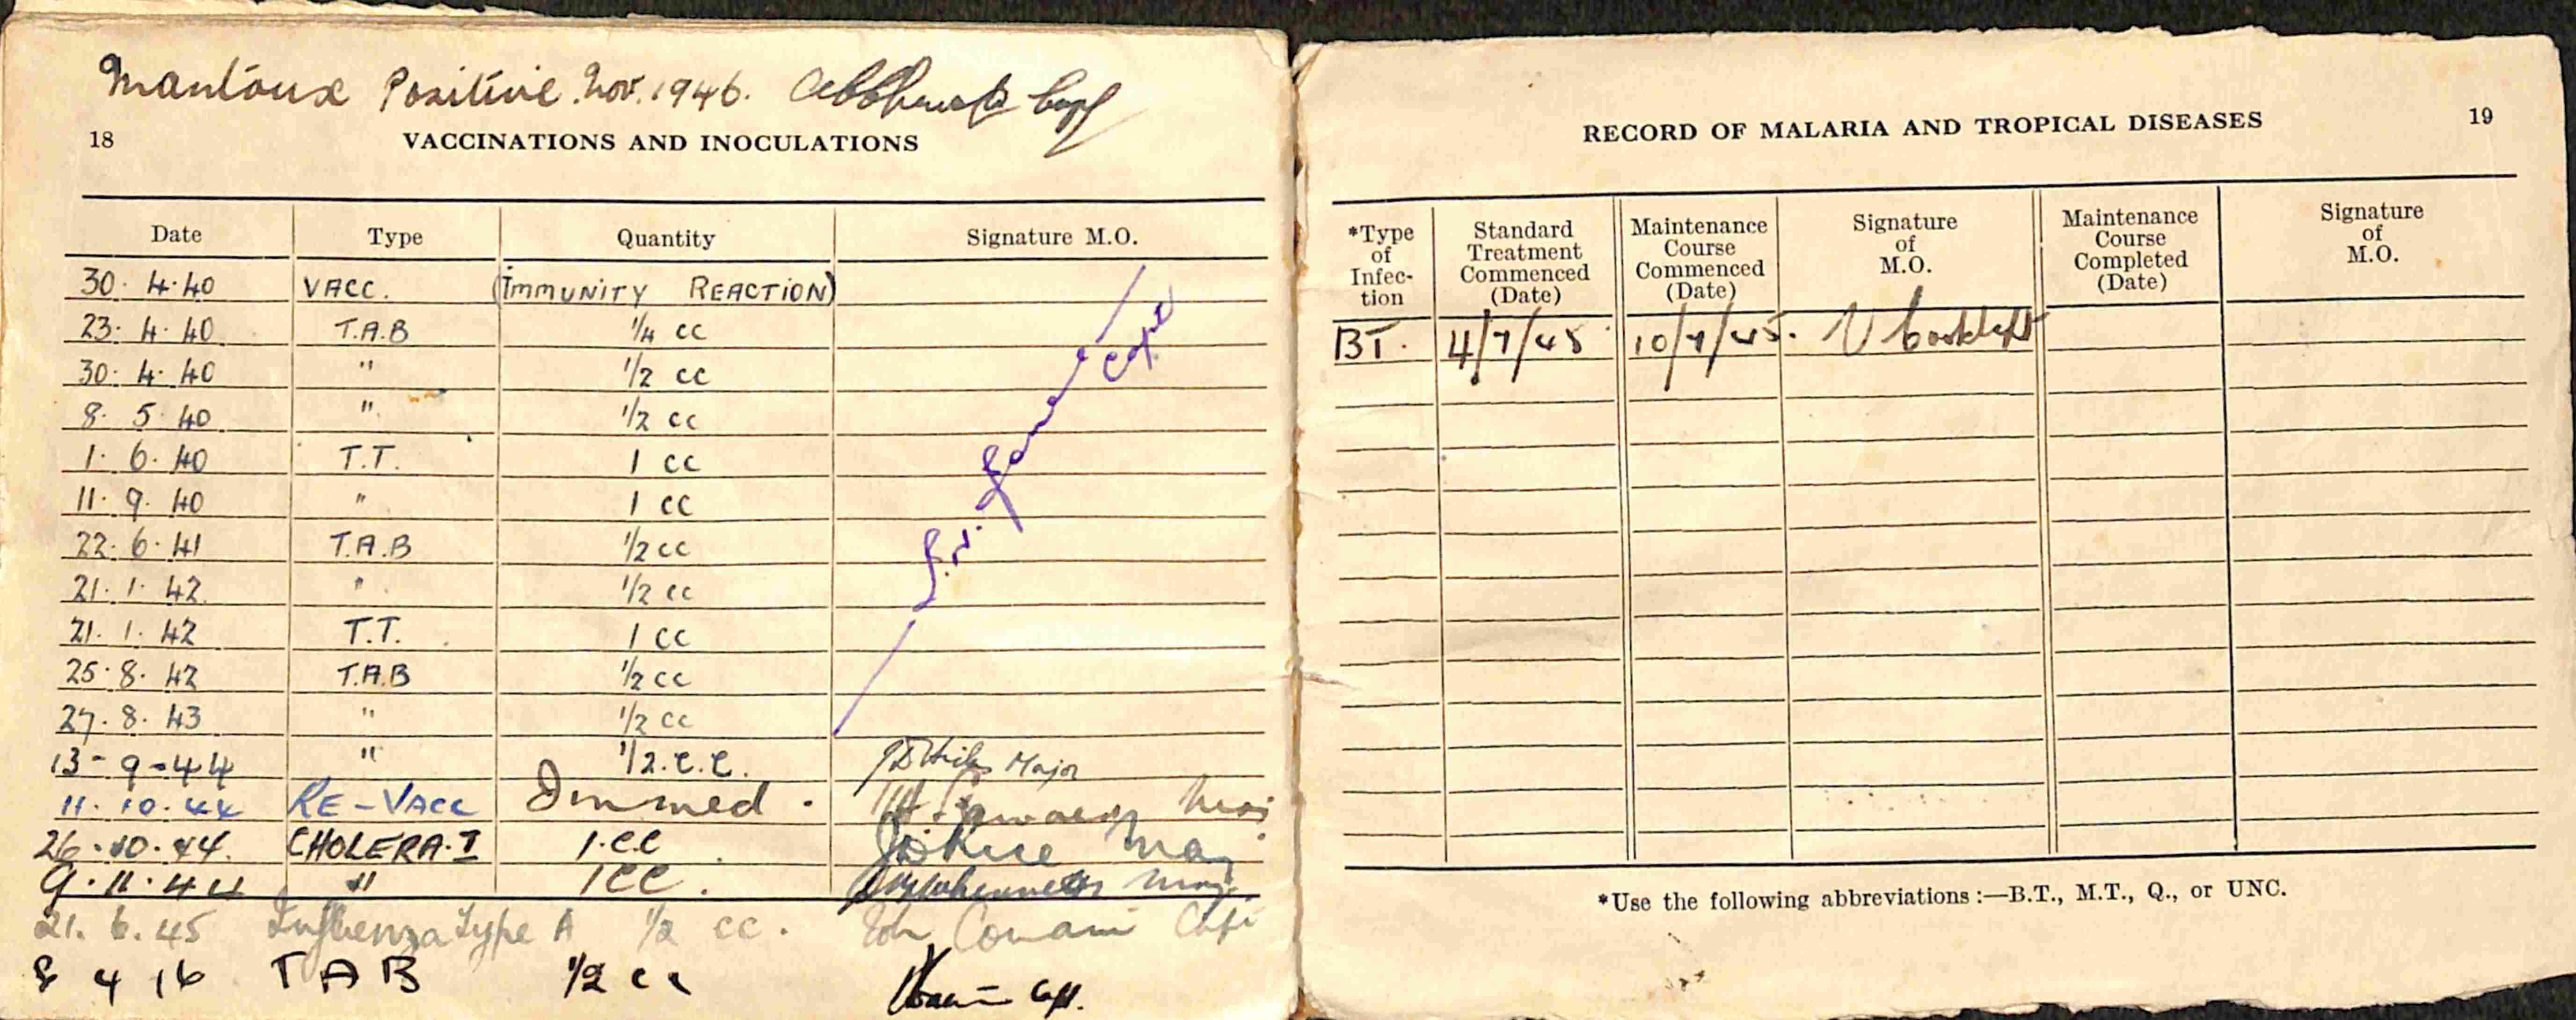 Mantoux Positive. Nov. 1946. Capt
18 VACCINATIONS AND INOCULATIONS
Date Type Quantity Signature M.O.
30. 4. 40 VACC. (IMMUNITY REACTION)
23. 4. 40 T.A.B 1/4 cc
30. 4. 40 " 1/2 cc
8. 5. 40 " 1/2 cc
1. 6. 40 T.T. 1 cc
11. 9. 40 " 1 cc
22. 6. 41 T.A.B 1/2 cc
21. 1. 42 " 1/2 cc
21. 1. 42 T.T. 1 cc
25. 8. 42 T.A.B 1/2 cc
27. 8. 43 " 1/2 cc
Capt
13-9-44 " 1/2.c.c. Major
11. 10. 44 RE-VACC Immed.
26. 10. 44. CHOLERA.I 1.CC Maj
9. 11. 44 " 1CC. Maj.
21. 6. 45 Influenza type A 1/2 cc. Capt
8 4 46 TAB 1/2 cc Capt.
RECORD OF MALARIA AND TROPICAL DISEASES 19
*Type of Infec-tion Standard Treatment Commenced (Date) Maintenance Course Commenced (Date) Signature of M.O. Maintenance Course Completed (Date) Signature of M.O.
BT. 4/7/45 10/7/45.
*Use the following abbreviations:—B.T., M.T., Q., or UNC.